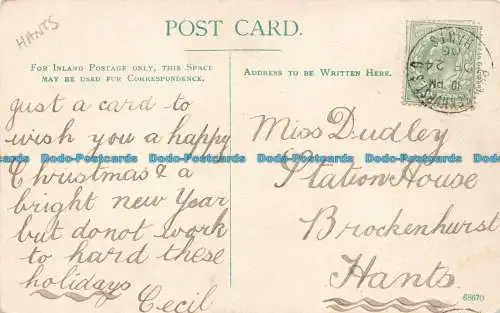 HANTS
POST CARD.
FOR INLAND POSTAGE ONLY, THIS SPACE
MAY BE USED FOR CORRESPONDENCE.
ADDRESS TO BE WRITTEN HERE.
just a card to
wish you a happy
Christmas & a
bright new Year
but do not work
to hard these
holidays
Cecil
Miss Dudley
Station House
Brockenhurst
Hants.
68670
Dodo-Postcards Dodo-Postcards Dodo-Postcards Dodo-Postcards
Dodo-Postcards Dodo-Postcards Dodo-Postcards Dodo-Postcards